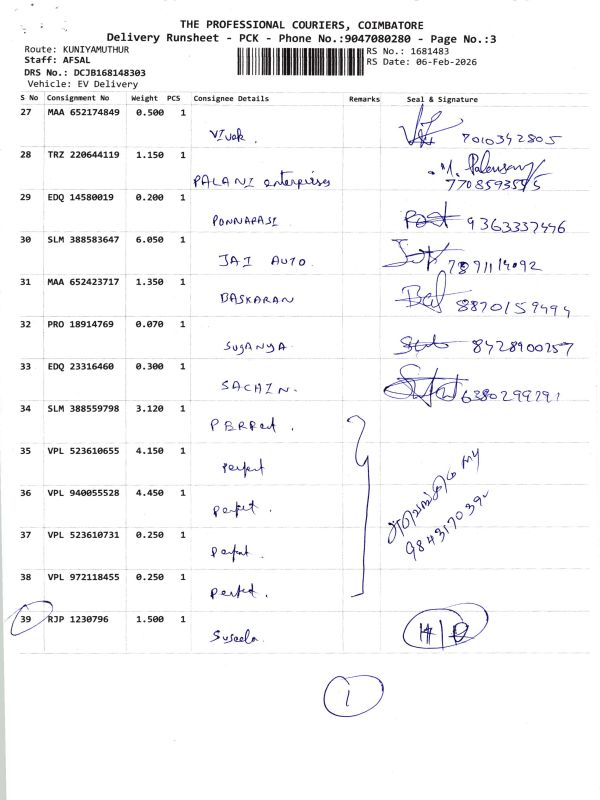 THE PROFESSIONAL COURIERS, COIMBATORE
Delivery Runsheet - PCK - Phone No.:9047080280 - Page No.:3
Route: KUNIYAMUTHUR
Staff: AFSAL
DRS No.: DCJB168148303
Vehicle: EV Delivery
RS No.: 1681483
RS Date: 06-Feb-2026
S No Consignment No Weight PCS Consignee Details Remarks Seal & Signature
27 MAA 652174849 0.500 1
Vivek. 7010342805
28 TRZ 220644119 1.150 1
PALANI enterprises 7708593595
29 EDQ 14580019 0.200 1
PONNARASI 9363337446
30 SLM 388583647 6.050 1
JAI AUTO. 7891114092
31 MAA 652423717 1.350 1
BASKARAN 8870159494
32 PRO 18914769 0.070 1
SUGANYA. 8428900257
33 EDQ 23316460 0.300 1
SACHIN. 6380299291
34 SLM 388559798 3.120 1
PERFect.
35 VPL 523610655 4.150 1
perfect
36 VPL 940055528 4.450 1
perfect.
37 VPL 523610731 0.250 1
perfect.
38 VPL 972118455 0.250 1
perfect.
39 RJP 1230796 1.500 1
Suseela. H/D
1